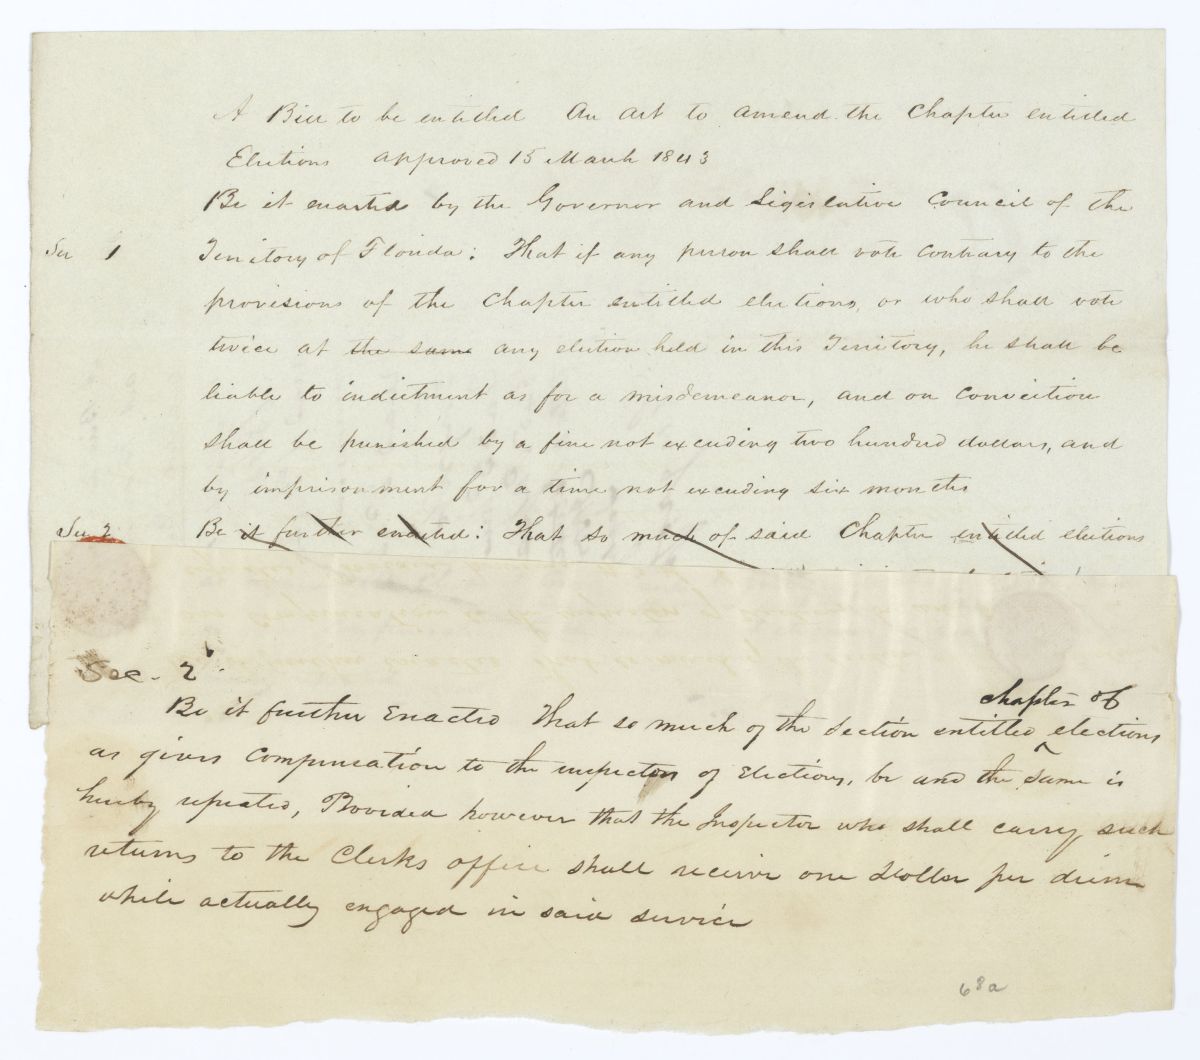 A Bill to be entitled An Act to amend the Chapter entitled
Elections approved 15 March 1843
Be it enacted by the Governor and Legislative Council of the
Sec 1 Territory of Florida: That if any person shall vote contrary to the
provisions of the Chapter entitled elections, or who shall vote
twice at the same any election held in this Territory, he shall be
liable to indictment as for a misdemeanor, and on conviction
shall be punished by a fine not exceeding two hundred dollars, and
by imprisonment for a time not exceeding six months
Sec 2 Be it further enacted: That so much of said Chapter entitled elections
Sec. 2
chapter of
Be it further Enacted That so much of the Section entitled elections
as gives compensation to the inspectors of Elections, be and the same is
hereby repealed, Provided however that the Inspector who shall carry such
returns to the Clerks office shall receive one Dollar per diem
while actually engaged in said service
68a